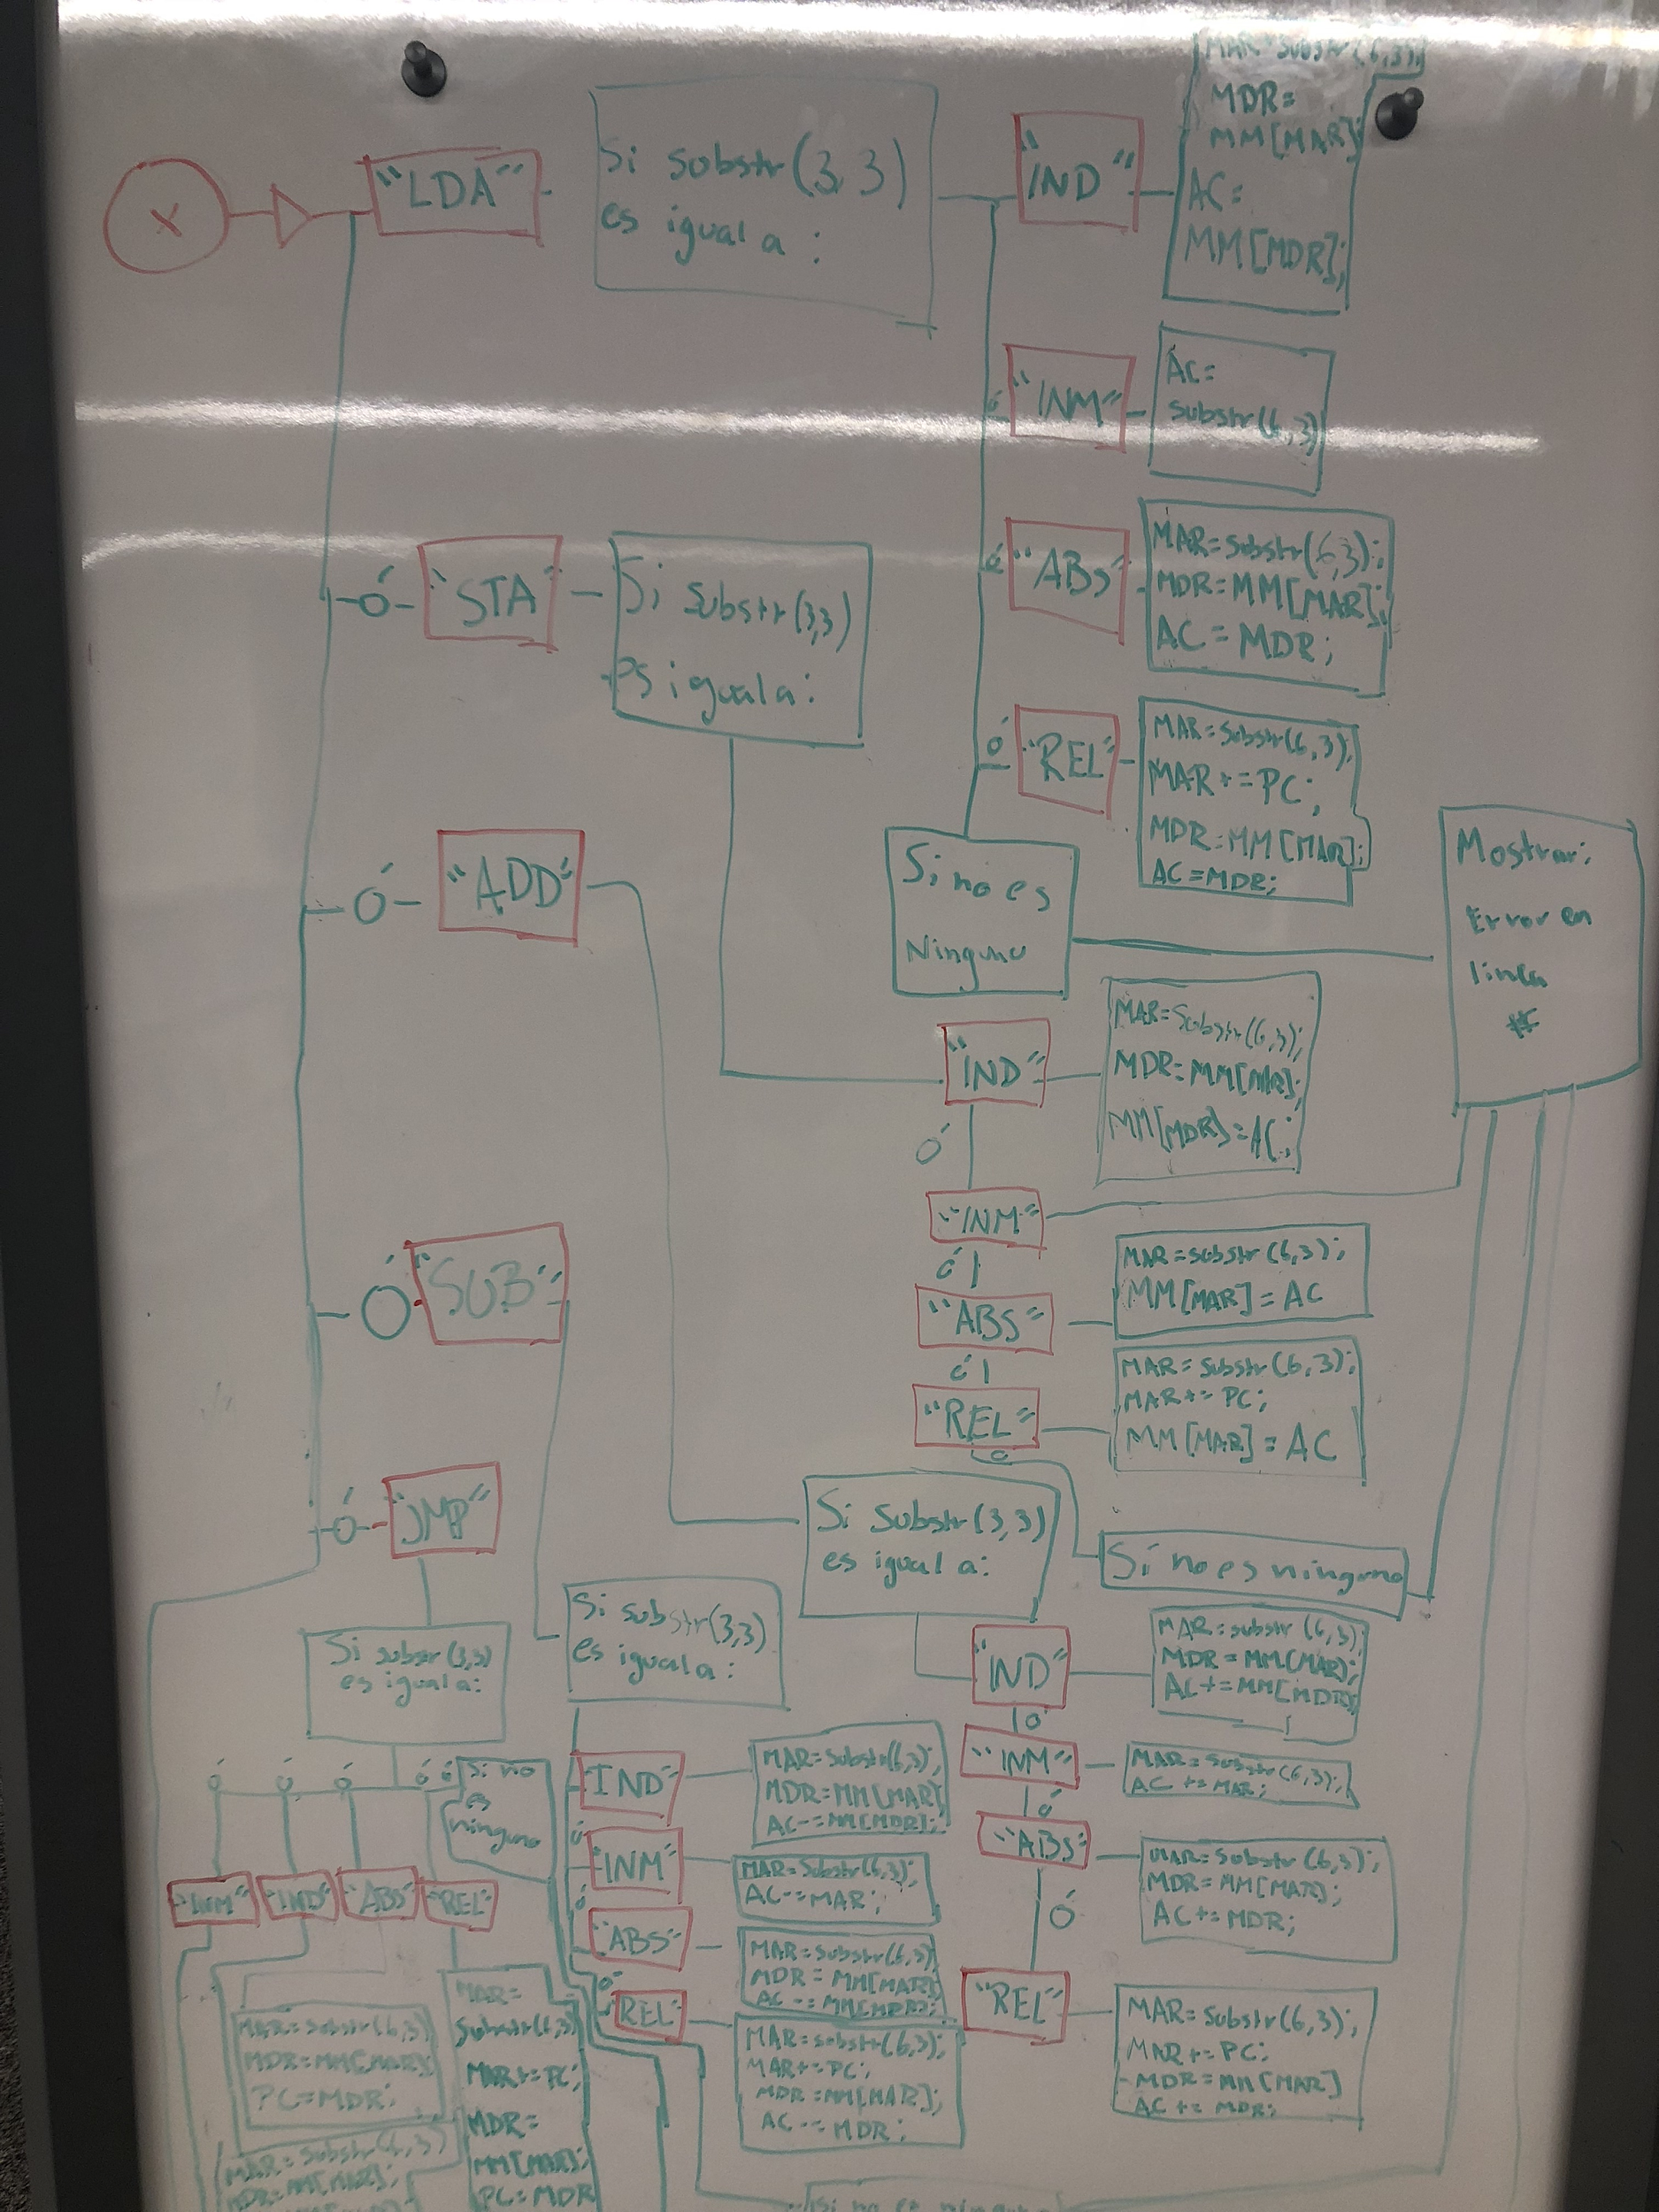 X
"LDA"
Si substr(3,3)
es igual a:
"IND"
MAR=substr(6,3);
MDR=
MM[MAR];
AC=
MM[MDR];
ó "INM"
AC=
substr(6,3)
ó "ABS"
MAR=Substr(6,3);
MDR=MM[MAR];
AC=MDR;
ó "REL"
MAR=Substr(6,3);
MAR+=PC;
MDR=MM[MAR];
AC=MDR;
Si no es
Ninguno
Mostrar:
Error en
linea
#
ó "STA"
Si substr(3,3)
es igual a:
"IND"
MAR=Substr(6,3);
MDR=MM[MAR];
MM[MDR]=AC;
ó
"INM"
ó
"ABS"
MAR=substr(6,3);
MM[MAR]=AC
ó
"REL"
MAR=substr(6,3);
MAR+=PC;
MM[MAR]=AC
Si no es ninguno
ó "ADD"
Si Substr(3,3)
es igual a:
"IND"
MAR=substr(6,3);
MDR=MM(MAR);
AC+=MM[MDR];
ó
"INM"
MAR=Substr(6,3);
AC+=MAR;
ó
"ABS"
MAR=Substr(6,3);
MDR=MM[MAR];
AC+=MDR;
ó
"REL"
MAR=Substr(6,3);
MAR+=PC;
MDR=MM[MAR]
AC+=MDR;
Ó "SUB"
Si substr(3,3)
es igual a:
IND"
MAR=Substr(6,3);
MDR=MM[MAR]
AC-=MM[MDR];
ó
"INM"
MAR=Substr(6,3);
AC-=MAR;
ó
"ABS"
MAR=Substr(6,3)
MDR=MM[MAR]
AC-=MM[MDR];
ó
REL"
MAR=substr(6,3);
MAR+=PC;
MDR=MM[MAR];
AC-=MDR;
Si no es ninguno
ó "JMP"
Si substr(3,3)
es igual a:
ó ó ó ó ó
Si no
es
ninguno
"INM" "IND" "ABS" "REL"
MAR=Substr(6,3)
MDR=MM[MAR];
PC=MDR;
MAR=
Substr(6,3)
MAR+=PC;
MDR=
MM[MAR];
PC=MDR
MAR=Substr(6,3)
MDR=MM[MAR];